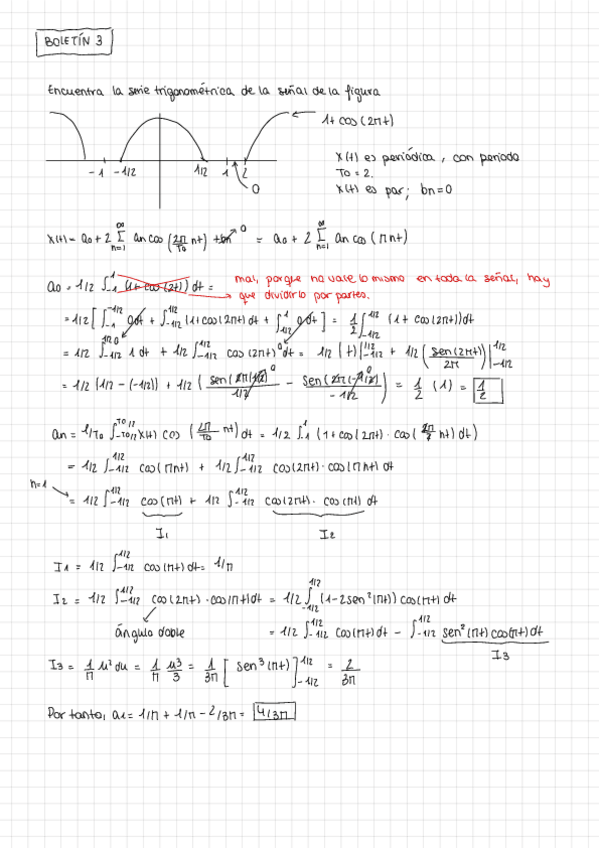 BOLETÍN 3
Encuentra la serie trigonométrica de la señal de la figura
1+cos(2πt)
-1 -1/2 1/2 1 2
0
x(t) es periódica, con periodo
T0 = 2.
x(t) es par; bn=0
x(t) = a0 + 2 ∞Σn=1 an cos (2π/T0 nt) + bn 0 = a0 + 2 ∞Σn=1 an cos (πnt)
a0 = 1/2 ∫-1^1 (1+cos(2t)) dt = mal, porque no vale lo mismo en toda la señal, hay
que dividirlo por partes.
= 1/2 [ ∫-1^-1/2 0dt + ∫-1/2^1/2 (1+cos(2πt)dt + ∫1/2^1 0dt ] = 1/2 ∫-1/2^1/2 (1+cos(2πt))dt
= 1/2 ∫-1/2^1/2 1 dt + 1/2 ∫-1/2^1/2 cos(2πt) dt = 1/2 (t)|-1/2^1/2 + 1/2 (sen(2πt)/2π)|-1/2^1/2
= 1/2 (1/2 - (-1/2)) + 1/2 ( sen(2π1/2)/1/2 - sen(2π(-1/2))/-1/2 ) = 1/2 (1) = 1/2
an = 1/T0 ∫-T0/2^T0/2 x(t) cos (2π/T0 nt) dt = 1/2 ∫-1^1 (1+cos(2πt) · cos(2π/2 nt) dt)
= 1/2 ∫-1/2^1/2 cos(πnt) + 1/2 ∫-1/2^1/2 cos(2πt) · cos(πnt) dt
n=1
= 1/2 ∫-1/2^1/2 cos(πt) + 1/2 ∫-1/2^1/2 cos(2πt) · cos(πt) dt
I1 I2
I1 = 1/2 ∫-1/2^1/2 cos(πt) dt = 1/π
I2 = 1/2 ∫-1/2^1/2 cos(2πt) · cos(πt) dt = 1/2 ∫-1/2^1/2 (1-2sen²(πt)) cos(πt) dt
ángulo doble = 1/2 ∫-1/2^1/2 cos(πt) dt - ∫-1/2^1/2 sen²(πt) cos(πt) dt
I3
I3 = 1/π u² du = 1/π u³/3 = 1/3π [ sen³(πt) ]-1/2^1/2 = 2/3π
Por tanto, a1 = 1/π + 1/π - 2/3π = 4/3π